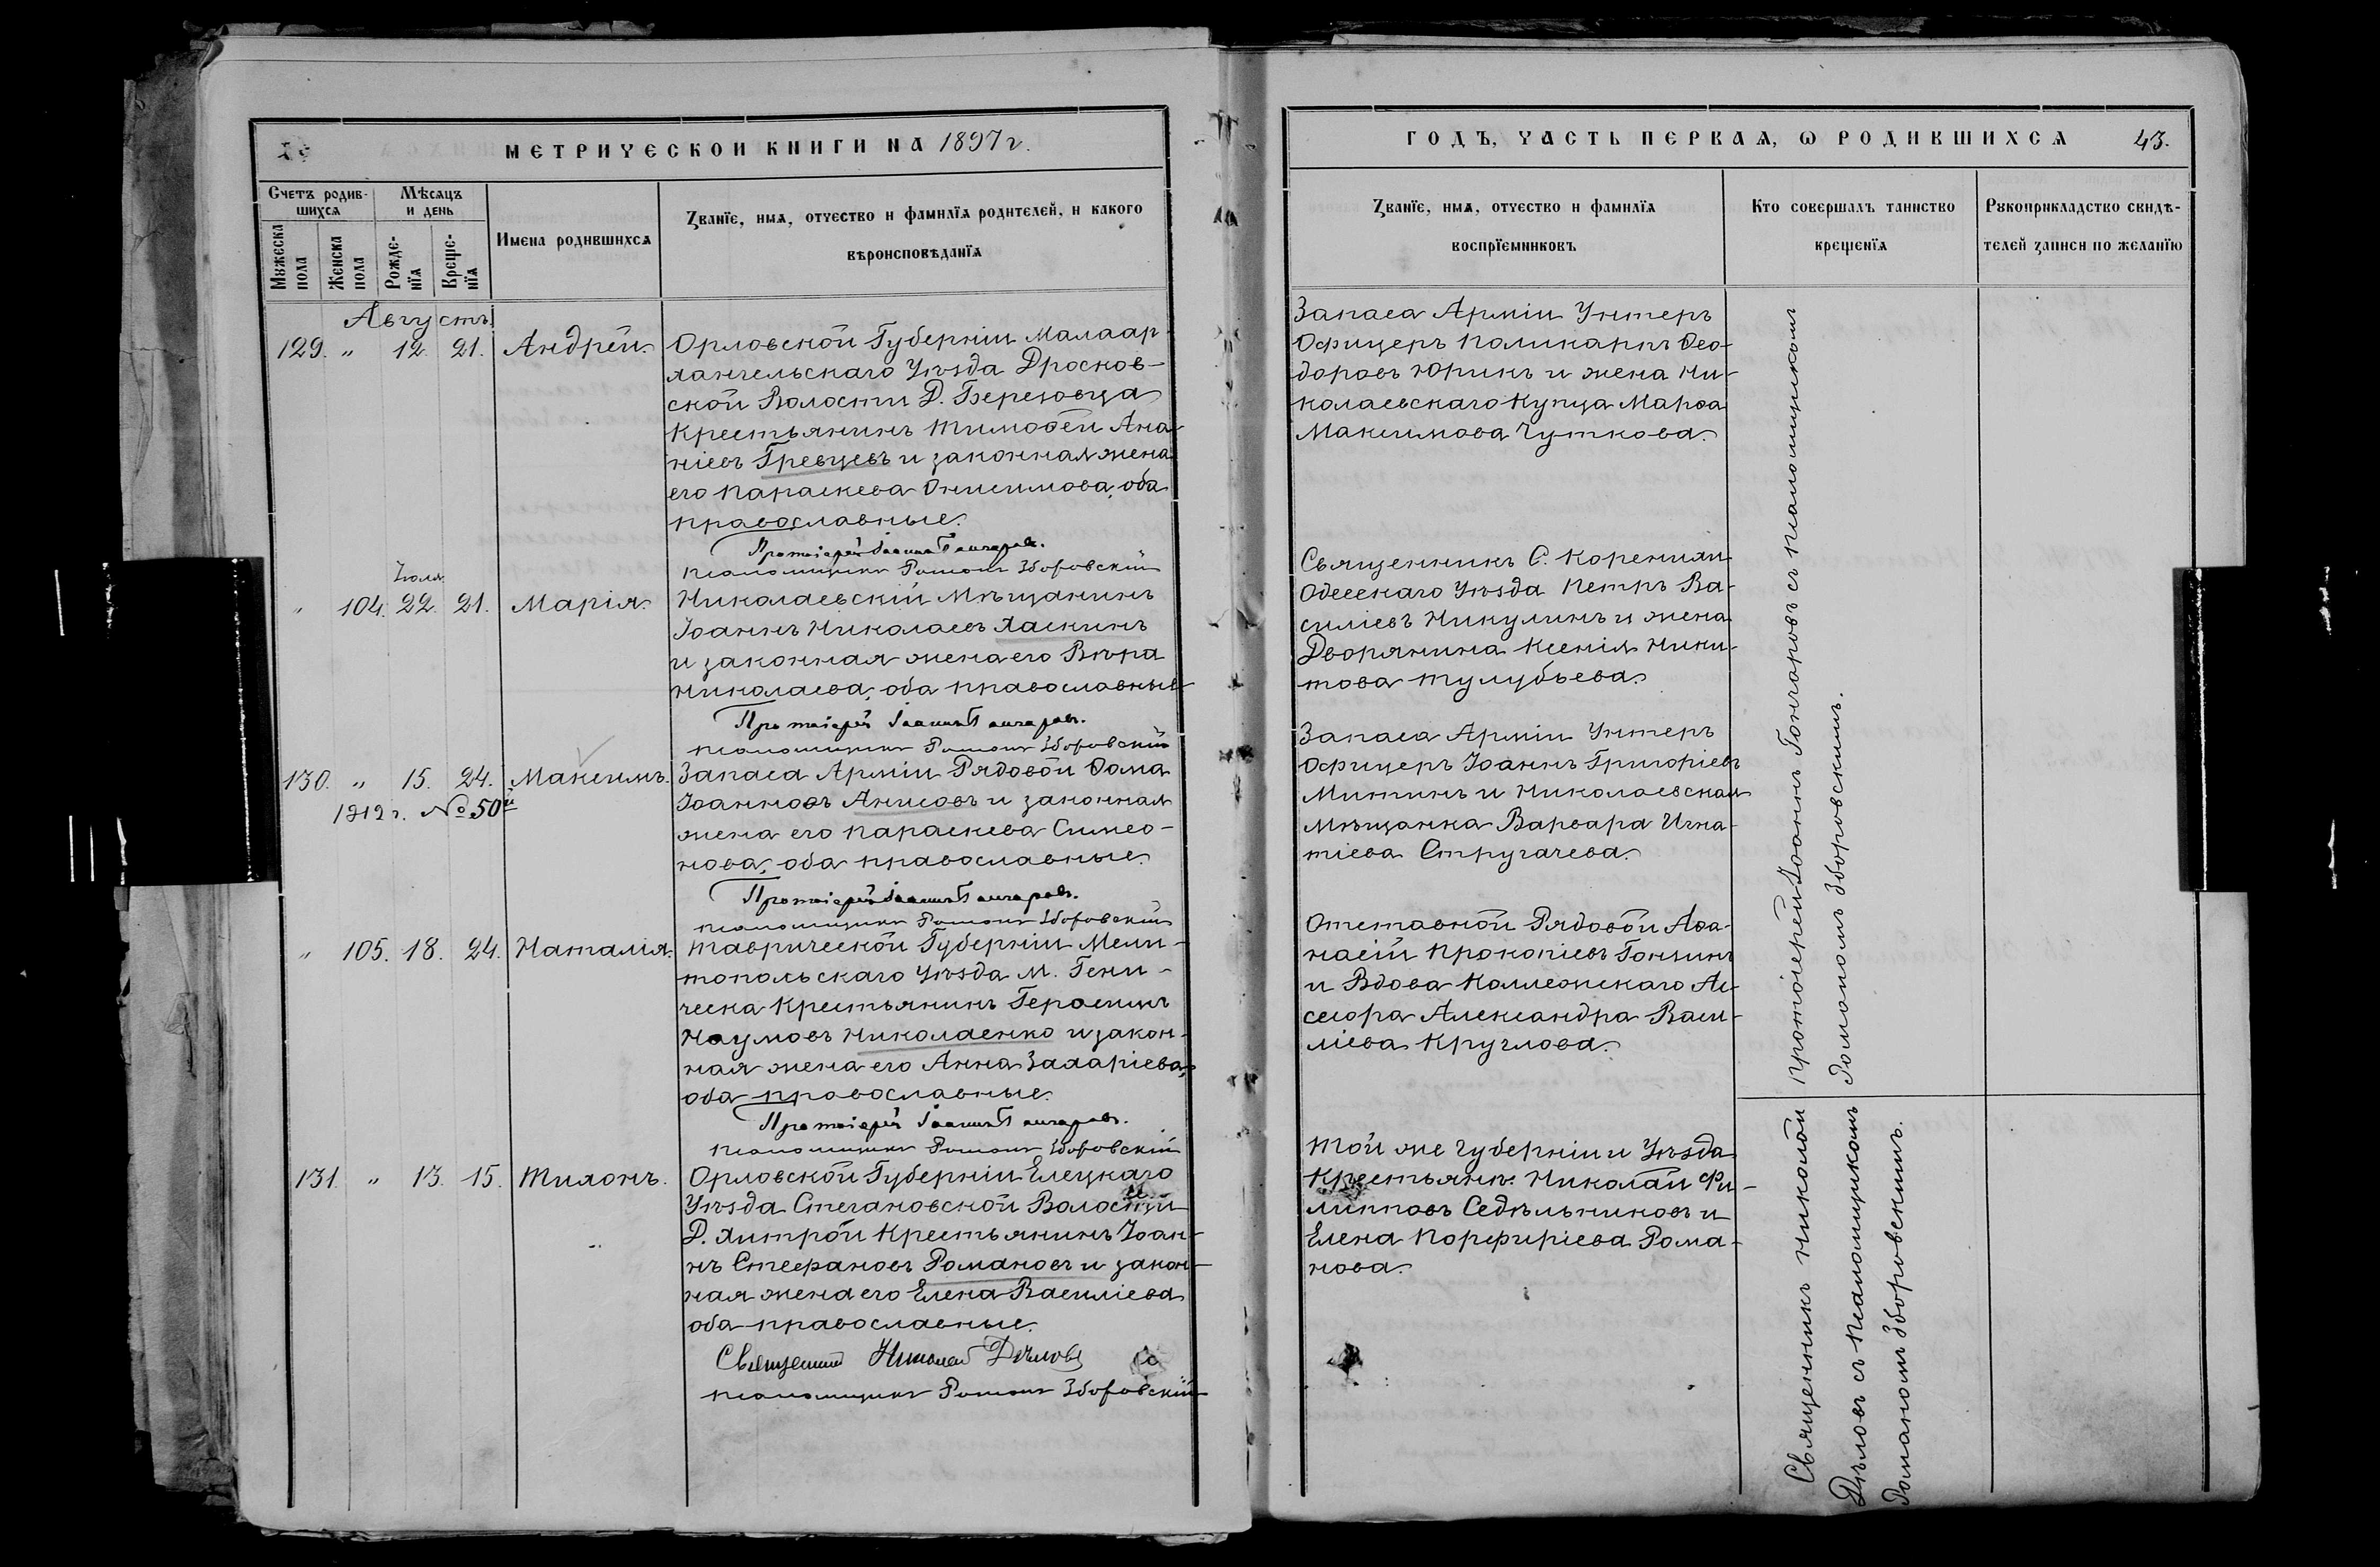 МЕТРИЧЕСКОЙ КНИГИ НА 1897 г.
Счетъ родив-
шихся
Мѣсяцъ
и день
Мужеска
пола
Женска
пола
Рожде-
нїя
Креще-
нїя
Имена родившихся
Званїе, имя, отчество и фамилїя родителей, и какого
вѣроисповѣданїя
Августъ
129. " 12. 21. Андрей.
Орловской Губерніи Малаар-
хангельскаго Уѣзда Дросков-
ской Волости Д. Березовца
Крестьянинъ Тимоѳей Ана-
ніевъ Гревцевъ и законная жена
его Параскева Онисимова, оба
православные.
Протоіерей Іоаннъ Гончаровъ.
псаломщикъ Романъ Зборовскій
Іюля
" 104. 22. 21. Марія.
Николаевскій Мѣщанинъ
Іоаннъ Николаевъ Хаскинъ
и законная жена его Вѣра
Николаева, оба православные
Протоіерей Іоаннъ Гончаровъ.
псаломщикъ Романъ Зборовскій
130. " 15. 24. Максимъ.
1912 г. № 50й
Запаса Арміи Рядовой Ѳома
Іоанновъ Анисовъ и законная
жена его Параскева Симео-
нова, оба православные.
Протоіерей Іоаннъ Гончаровъ.
псаломщикъ Романъ Зборовскій
" 105. 18. 24. Наталія.
Таврической Губерніи Мели-
топольскаго Уѣзда М. Гени-
ческа Крестьянинъ Герасимъ
Наумовъ Николаенко и закон-
ная жена его Анна Захаріева,
оба православные.
Протоіерей Іоаннъ Гончаровъ.
псаломщикъ Романъ Зборовскій
131. " 13. 15. Тихонъ.
Орловской Губерніи Елецкаго
Уѣзда Стегановской Волости
Д. Хитрой Крестьянинъ Іоан-
нъ Стефановъ Романовъ и закон-
ная жена его Елена Василіева
оба православные.
Священникъ Николай Дѣловъ
псаломщикъ Романъ Зборовскій
ГОДЪ, ЧАСТЬ ПЕРВАЯ, Ѡ РОДИВШИХСЯ 43.
Званїе, имя, отчество и фамилїя
воспрїемниковъ
Кто совершалъ таинство
крещенїя
Рукоприкладство свидѣ-
телей записи по желанїю
Запаса Арміи Унтеръ
Офицеръ Поликарпъ Ѳео-
доровъ Юринъ и жена Ни-
колаевскаго Купца Марѳа
Максимова Чуткова.
Священникъ С. Коренихи
Одесскаго Уѣзда Петръ Ва-
силіевъ Никулинъ и жена
Дворянина Ксенія Ники-
това Тулубьева.
Запаса Арміи Унтеръ
Офицеръ Іоаннъ Григоріевъ
Митинъ и Николаевская
Мѣщанка Варвара Игна-
тіева Стругачева.
Отставной Рядовой Аѳа-
насій Прокопіевъ Гонцинъ
и Вдова Коллежскаго Ас-
сесора Александра Васи-
ліева Круглова.
Той же Губерніи и Уѣзда
Крестьянъ. Николай Фи-
липповъ Седѣльниковъ и
Елена Порфиріева Рома-
нова.
Протоіерей Іоаннъ Гончаровъ съ псаломщикомъ
Романомъ Зборовскимъ.
Священникъ Николай
Дѣловъ съ псаломщикомъ
Романомъ Зборовскимъ.